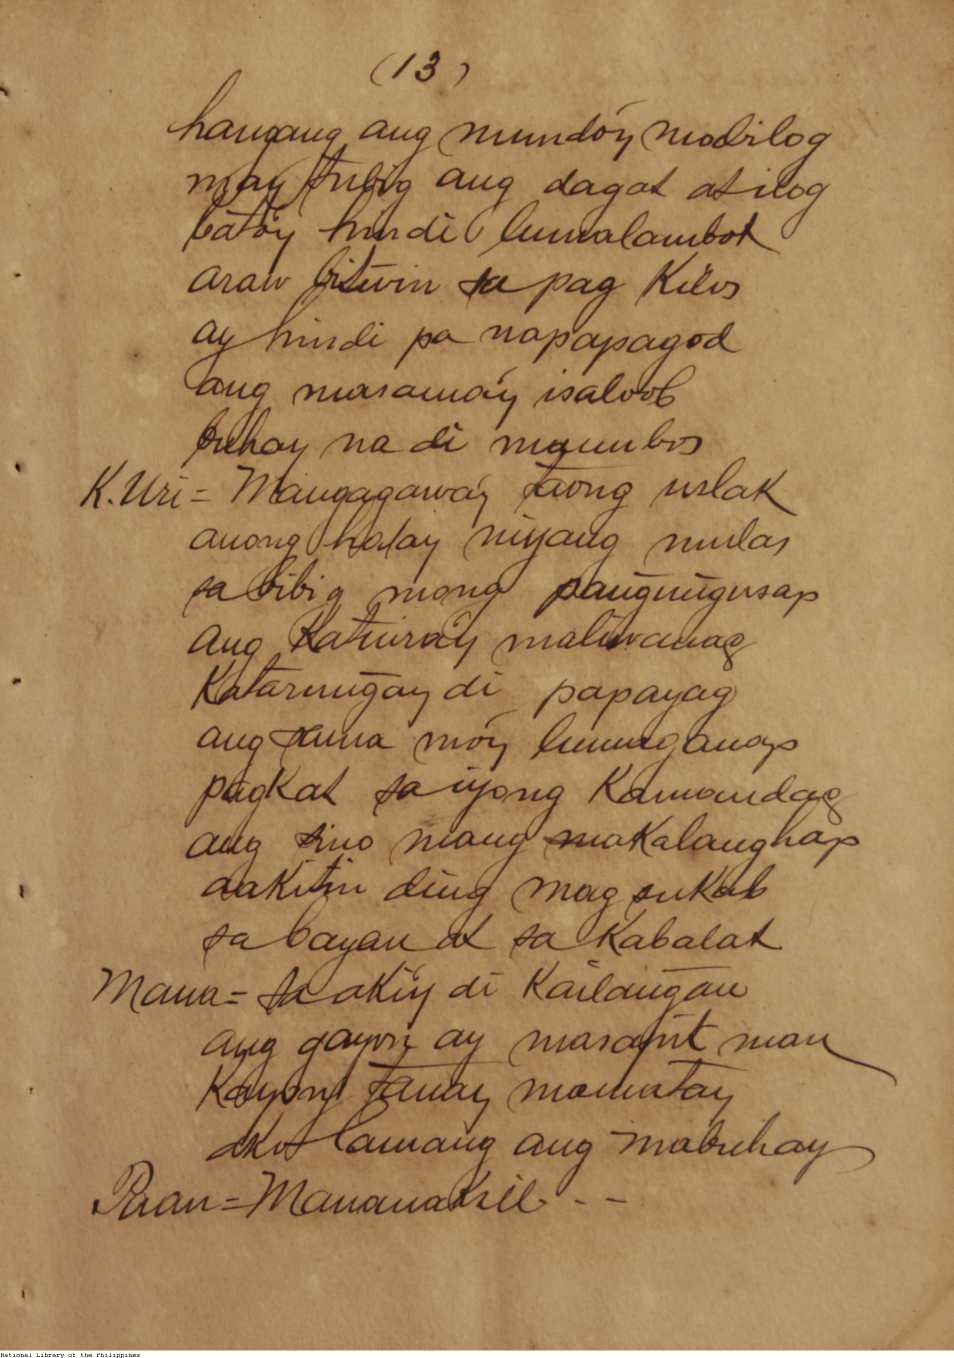 (13)
hangang ang mundóy mabilog
may tubig ang dagat at ilog
batóy hindi lumalambot
araw bituin sa pag kilos
ay hindi pa napapagod
ang masamáy isaloob
buhay na di mauubos
K. Uri = Mangagawáy taong uslak
anong halay niyang mulas
sa bibig mong pangungusap
ang katuiráy maliwanag
Katarungay di papayag
ang sama móy lumaganap
pagkat sa iyong kamandag
ang sino mang makalanghap
aakitin ding mag sukab
sa bayan at sa kabalat
Mana = sa akiy di kailangan
ang gayon ay masapit man
kayong tanay mamatay
ako lamang ang mabuhay
Paan = Mananaksil - - -
National Library of the Philippines